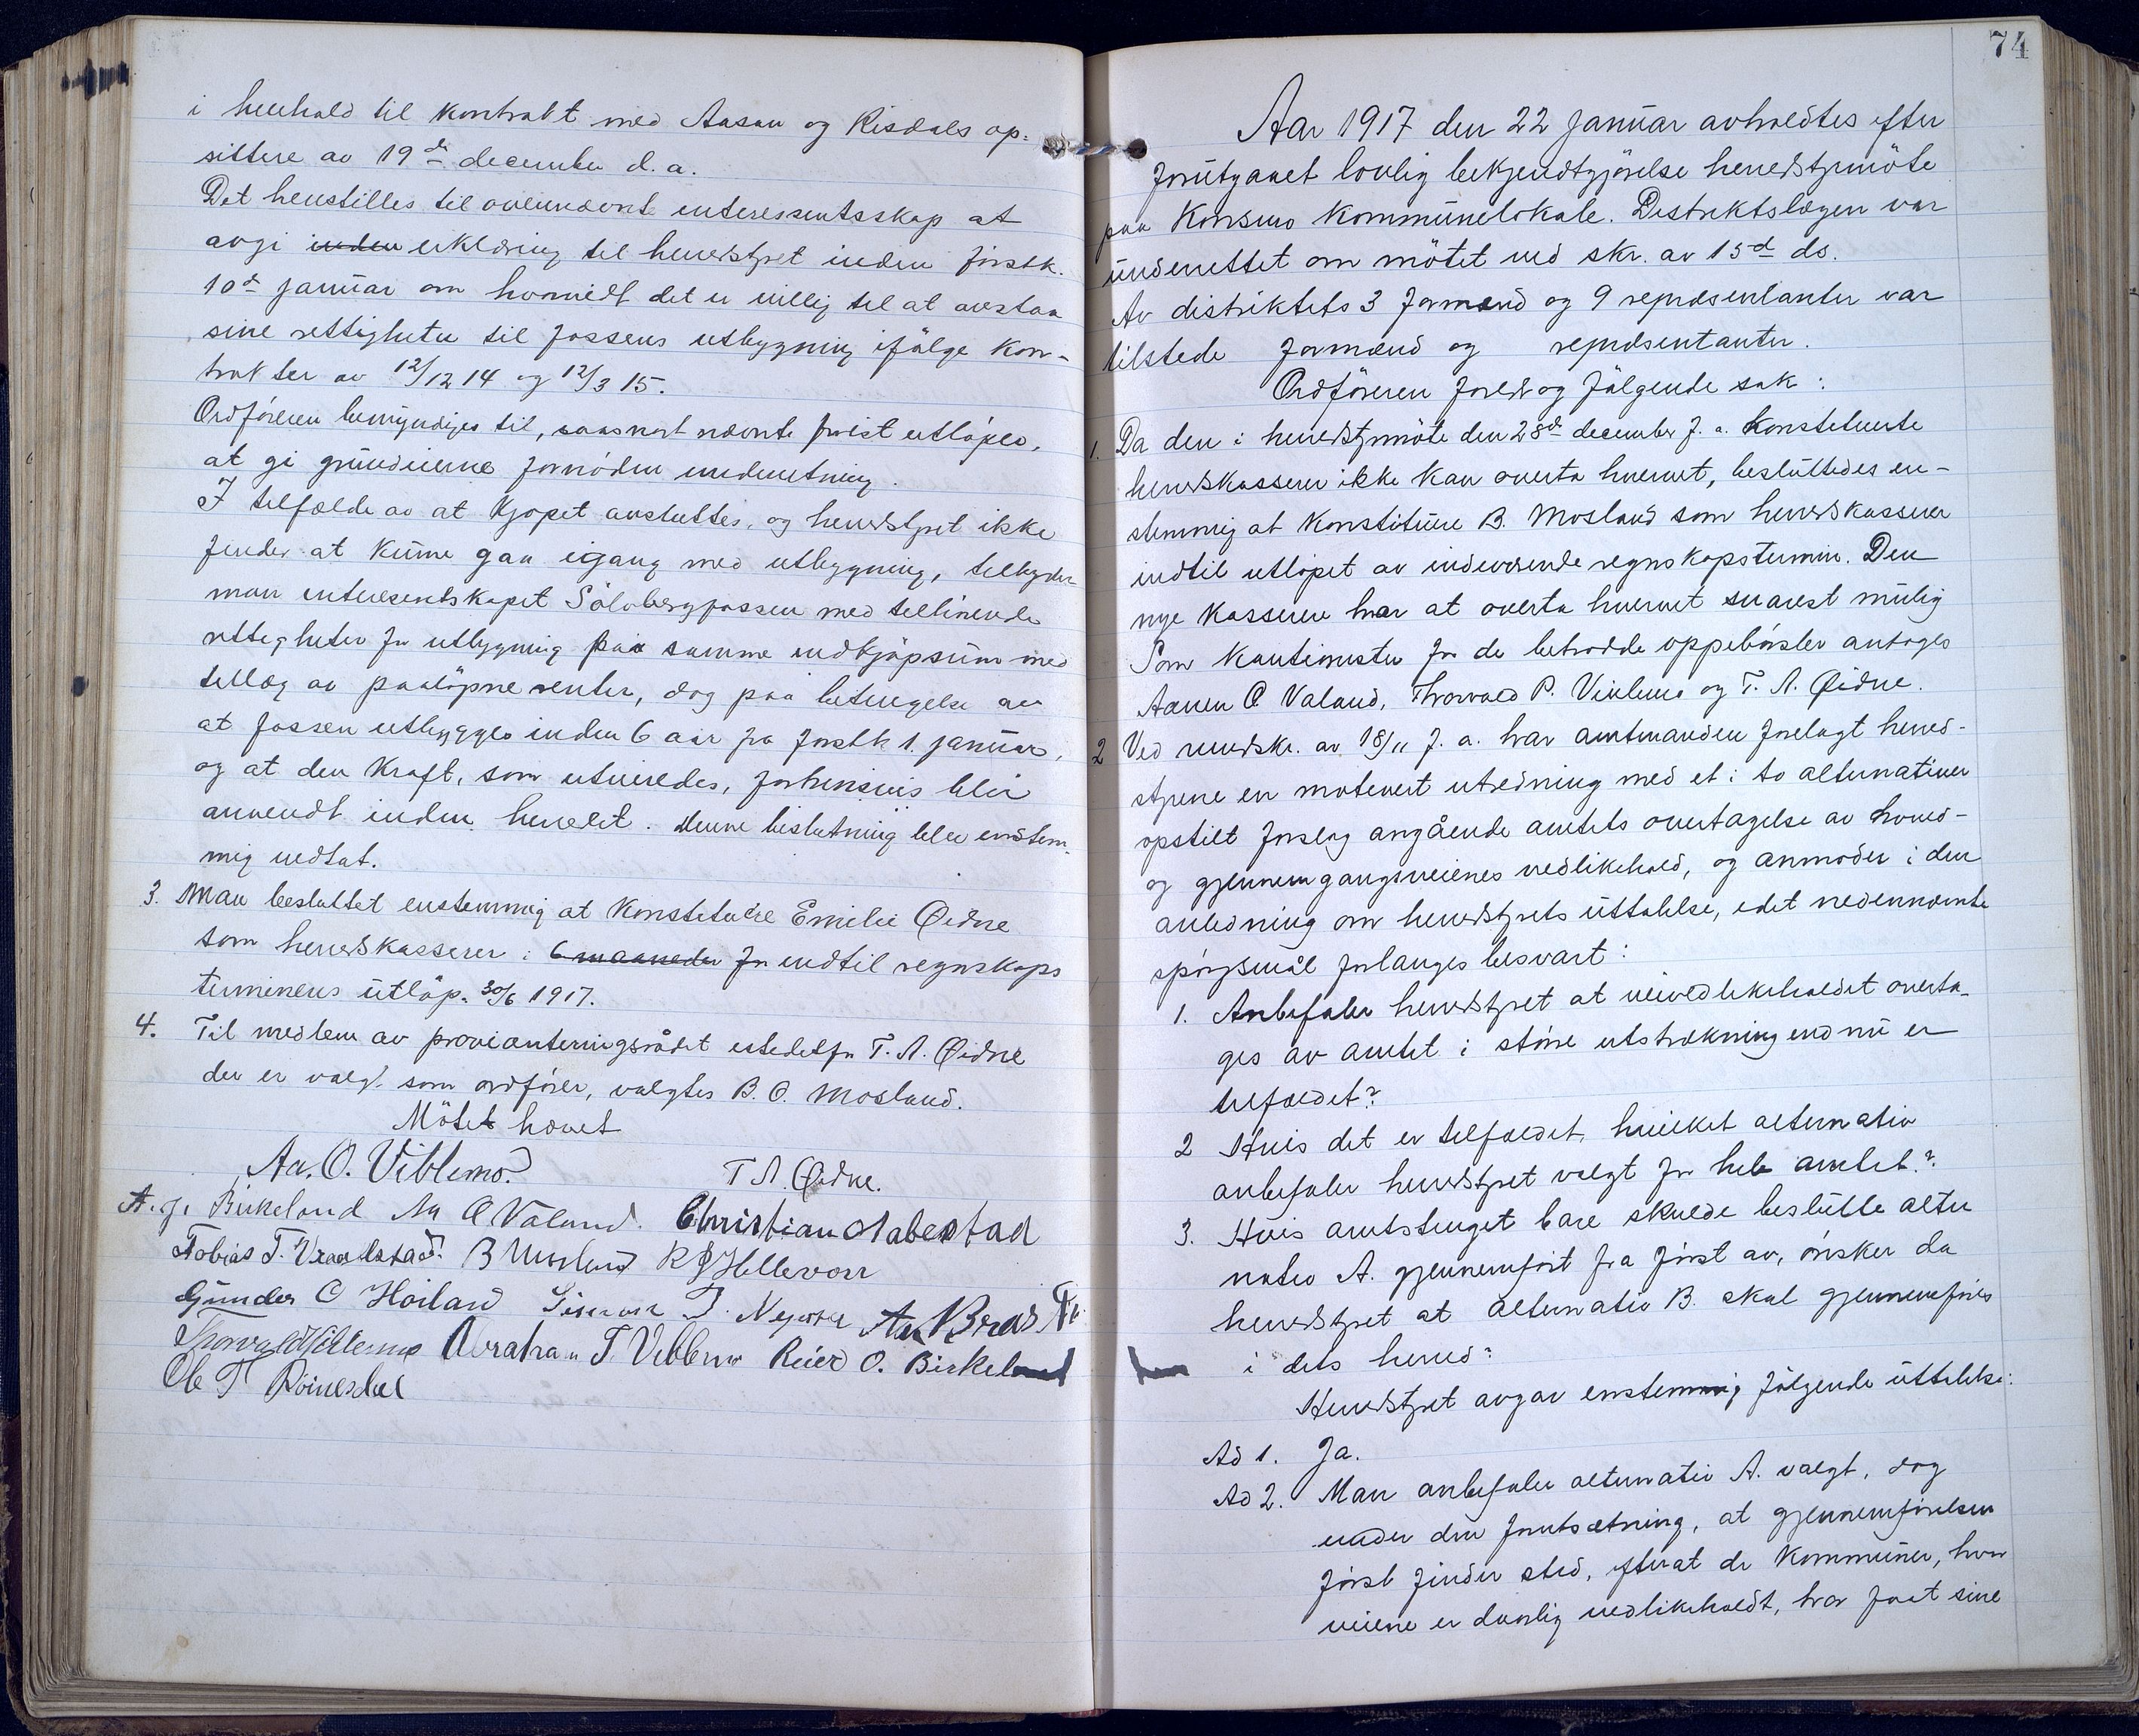 i henhold til kontrakt med Aasen og Risdals op-
sittere av 19de december d.a.
Det henstilles til ovennævnte interessentsskap at
avgi inden erklæring til herredstyret inden förstk.
10de januar om hvorvidt det er villig til at avstaa
sine rettigheter til fossens utbygning ifölge kon-
trakter av 12/12 14 og 12/3 15.
Ordföreren bemyndiges til, saasnart nævnte frist utlöpes,
at gi grundeierne fornöden underretning.
I tilfælde av at kjöpet avsluttes, og herredstyret ikke
finder at kunne gaa igang med utbygning, tilbyder
man interesentskapet Sölvbergfossen med tilliggende
rettigheter for utbygning paa samme indkjöpsum med
tillæg av paalöpne renter, dog paa betingelse av
at fossen utbygges inden 6 aar fra förstk 1. januar,
og at den kraft, som utvindes, forholdsvis blir
anvendt inden herredet. Denne beslutning blev enstem-
mig vedtat.
3. Man besluttet enstemmig at konstituere Emilie Øidne
som herredskasserer i 6 maaneder for indtil regnskaps
terminens utlöp. 30/6 1917.
4. Til medlem av provianteringsrådet istedetfor T. A. Øidne
der er valgt som ordförer, valgtes B. O. Mosland.
Mötet hævet
Aa. O. Viblemo. T A. Øidne.
A. J. Birkeland Aa O Valand. Christian Aabestad
Tobias T. B Mosland R Hellevorr
Gunder O Höiland Simon T. Aa
Thorvald Viblemo Abraham T. Viblemo Reier O. Birkeland
Ole T Röinesdal
74
Aar 1917 den 22 Januar avholdtes efter
forutganet lovlig bekjendtgjörelse herredstyrmöte
paa Konsmo kommunelokale. Distriktslægen var
underrettet om mötet ved skr. av 15de ds.
Av distriktets 3 formænd og 9 repræsentanter var
tilstede formænd og repræsentanter.
Ordföreren foredrog fölgende sak:
1. Da den i herredstyrmöte den 28de december f. a. konstituerte
herredskasserer ikke kan overta hvervet, besluttedes en-
stemmig at konstituere B. Mosland som herredskasserer
indtil utlöpet av indeværende regnskapstermin. Den
nye kasserer har at overta hvervet snarest mulig
Som kautionister for de betrodde oppebörsler antoges
Aanen O Valand, Thorvald P. Viblemo og T. A. Øidne.
2 Ved rundskr. av 18/11 f. a. har amtmanden forelagt herred-
styrene en motivert utredning med et i to alternativer
opstilt forslag angående amtets overtagelse av hoved-
og gjennemgangsveienes vedlikehold, og anmoder i den
anledning om herredstyrets uttalelse, idet nedennævnte
spörgsmål forlanges besvart:
1. Anbefaler herredstyret at veivedlikeholdet overta-
ges av amtet i större utstrækning end nu er
tilfældet?
2 Hvis det er tilfældet, hvilket alternativ
anbefaler herredstyret valgt for hele amtet?
3. Hvis amtstinget bare skulde beslutte alter
nativ A. gjennemfört fra först av, önsker da
herredstyret at alternativ B. skal gjennemföres
i dets herred?
Herredstyret avgav enstemmig fölgende uttalelse:
Ad 1. Ja.
Ad 2. Man anbefaler alternativ A. valgt, dog
under den forutsætning, at gjennemförelsen
först finder sted, efterat de kommuner, hvor
veiene er daarlig vedlikeholdt, har faat sine